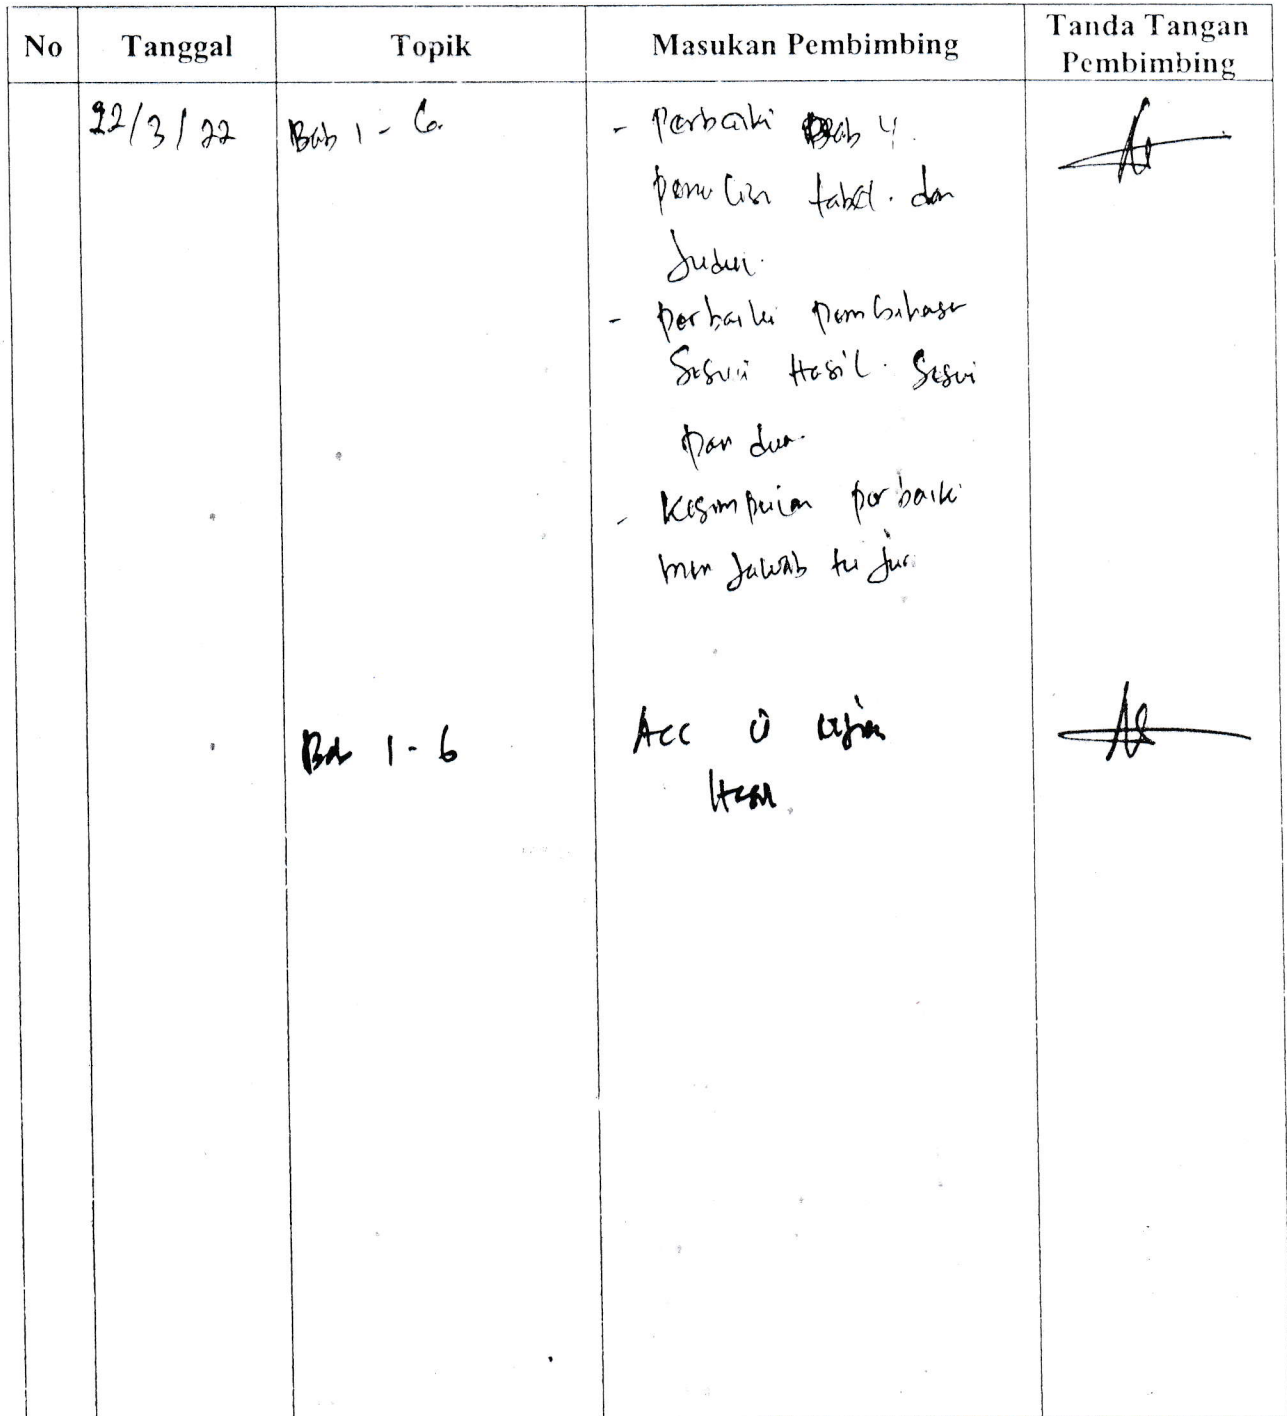 No Tanggal Topik Masukan Pembimbing Tanda Tangan Pembimbing
22/3/22 Bab 1 - 6. - Perbaiki Bab 4.
penulisn tabel. dan
Judul.
- perbaiki pembahasn
Sesuai Hasil. Sesuai
panduan.
- Kesimpulan perbaiki
menjawab tujuan
Bab 1-6 Acc ujian
Hasil